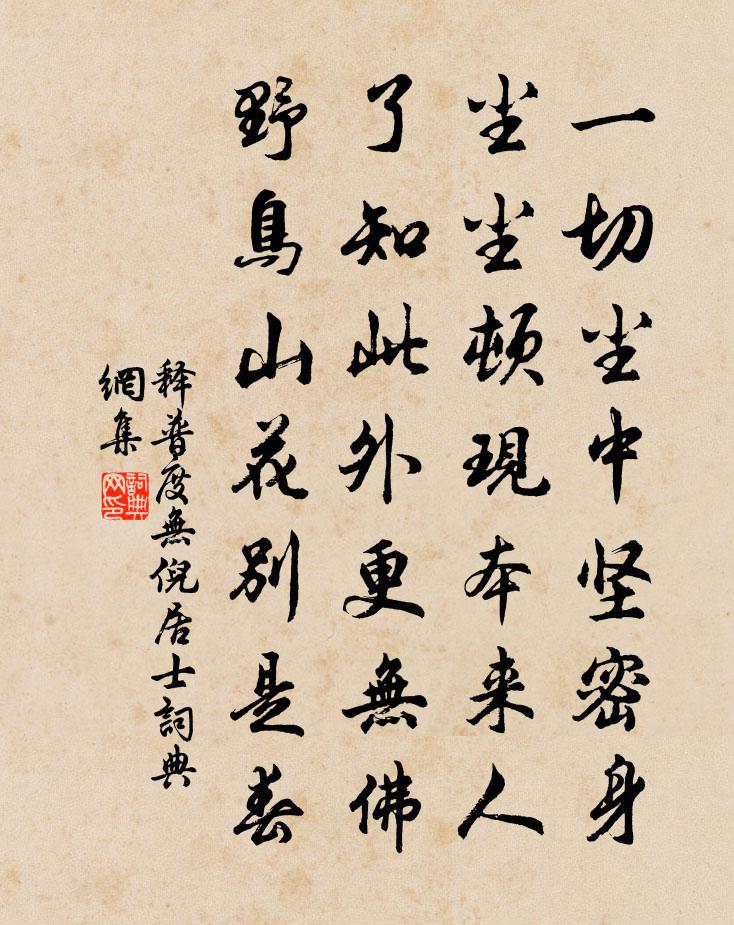 一切尘中坚密身
尘尘顿现本来人
了知此外更無佛
野鳥山花别是春
释普度無倪居士詞典
網集
詞典
网印